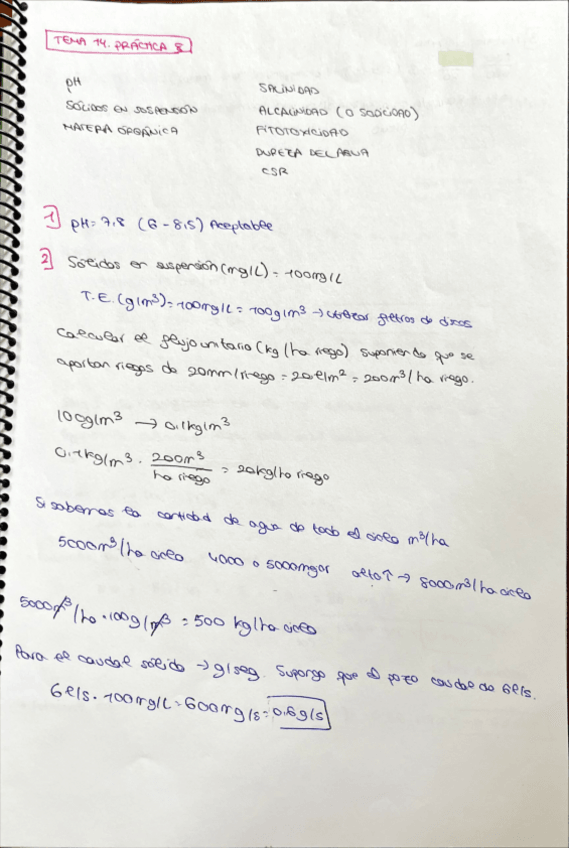 TEMA 14. PRÁCTICA 8
pH
SÓLIDOS EN SUSPENSIÓN
MATERIA ORGÁNICA
SALINIDAD
ALCALINIDAD (O SODICIDAD)
FITOTOXICIDAD
DUREZA DEL AGUA
CSR
1] pH = 7,8 (6 - 8,5) Aceptable
2] Sólidos en suspensión (mg/L) = 100mg/L
T.E. (g/m³) = 100mg/L = 100g/m³ → utilizar filtros de discos
Calcular el flujo unitario (kg/ha riego) suponiendo que se
aportan riegos de 20mm/riego = 20 l/m² = 200m³/ha riego.
100g/m³ → 0,1kg/m³
0,1kg/m³ · 200m³/ha riego = 20kg/ha riego
Si sabemos la cantidad de agua de todo el ciclo m³/ha
5000m³/ha ciclo 4000 o 5000 → 8000m³/ha ciclo
5000m³/ha · 100g/m³ = 500 kg/ha ciclo
Para el caudal sólido → g/seg. Supongo que el pozo caudal de 6l/s.
6l/s · 100mg/L = 600mg/s = 0,6g/s